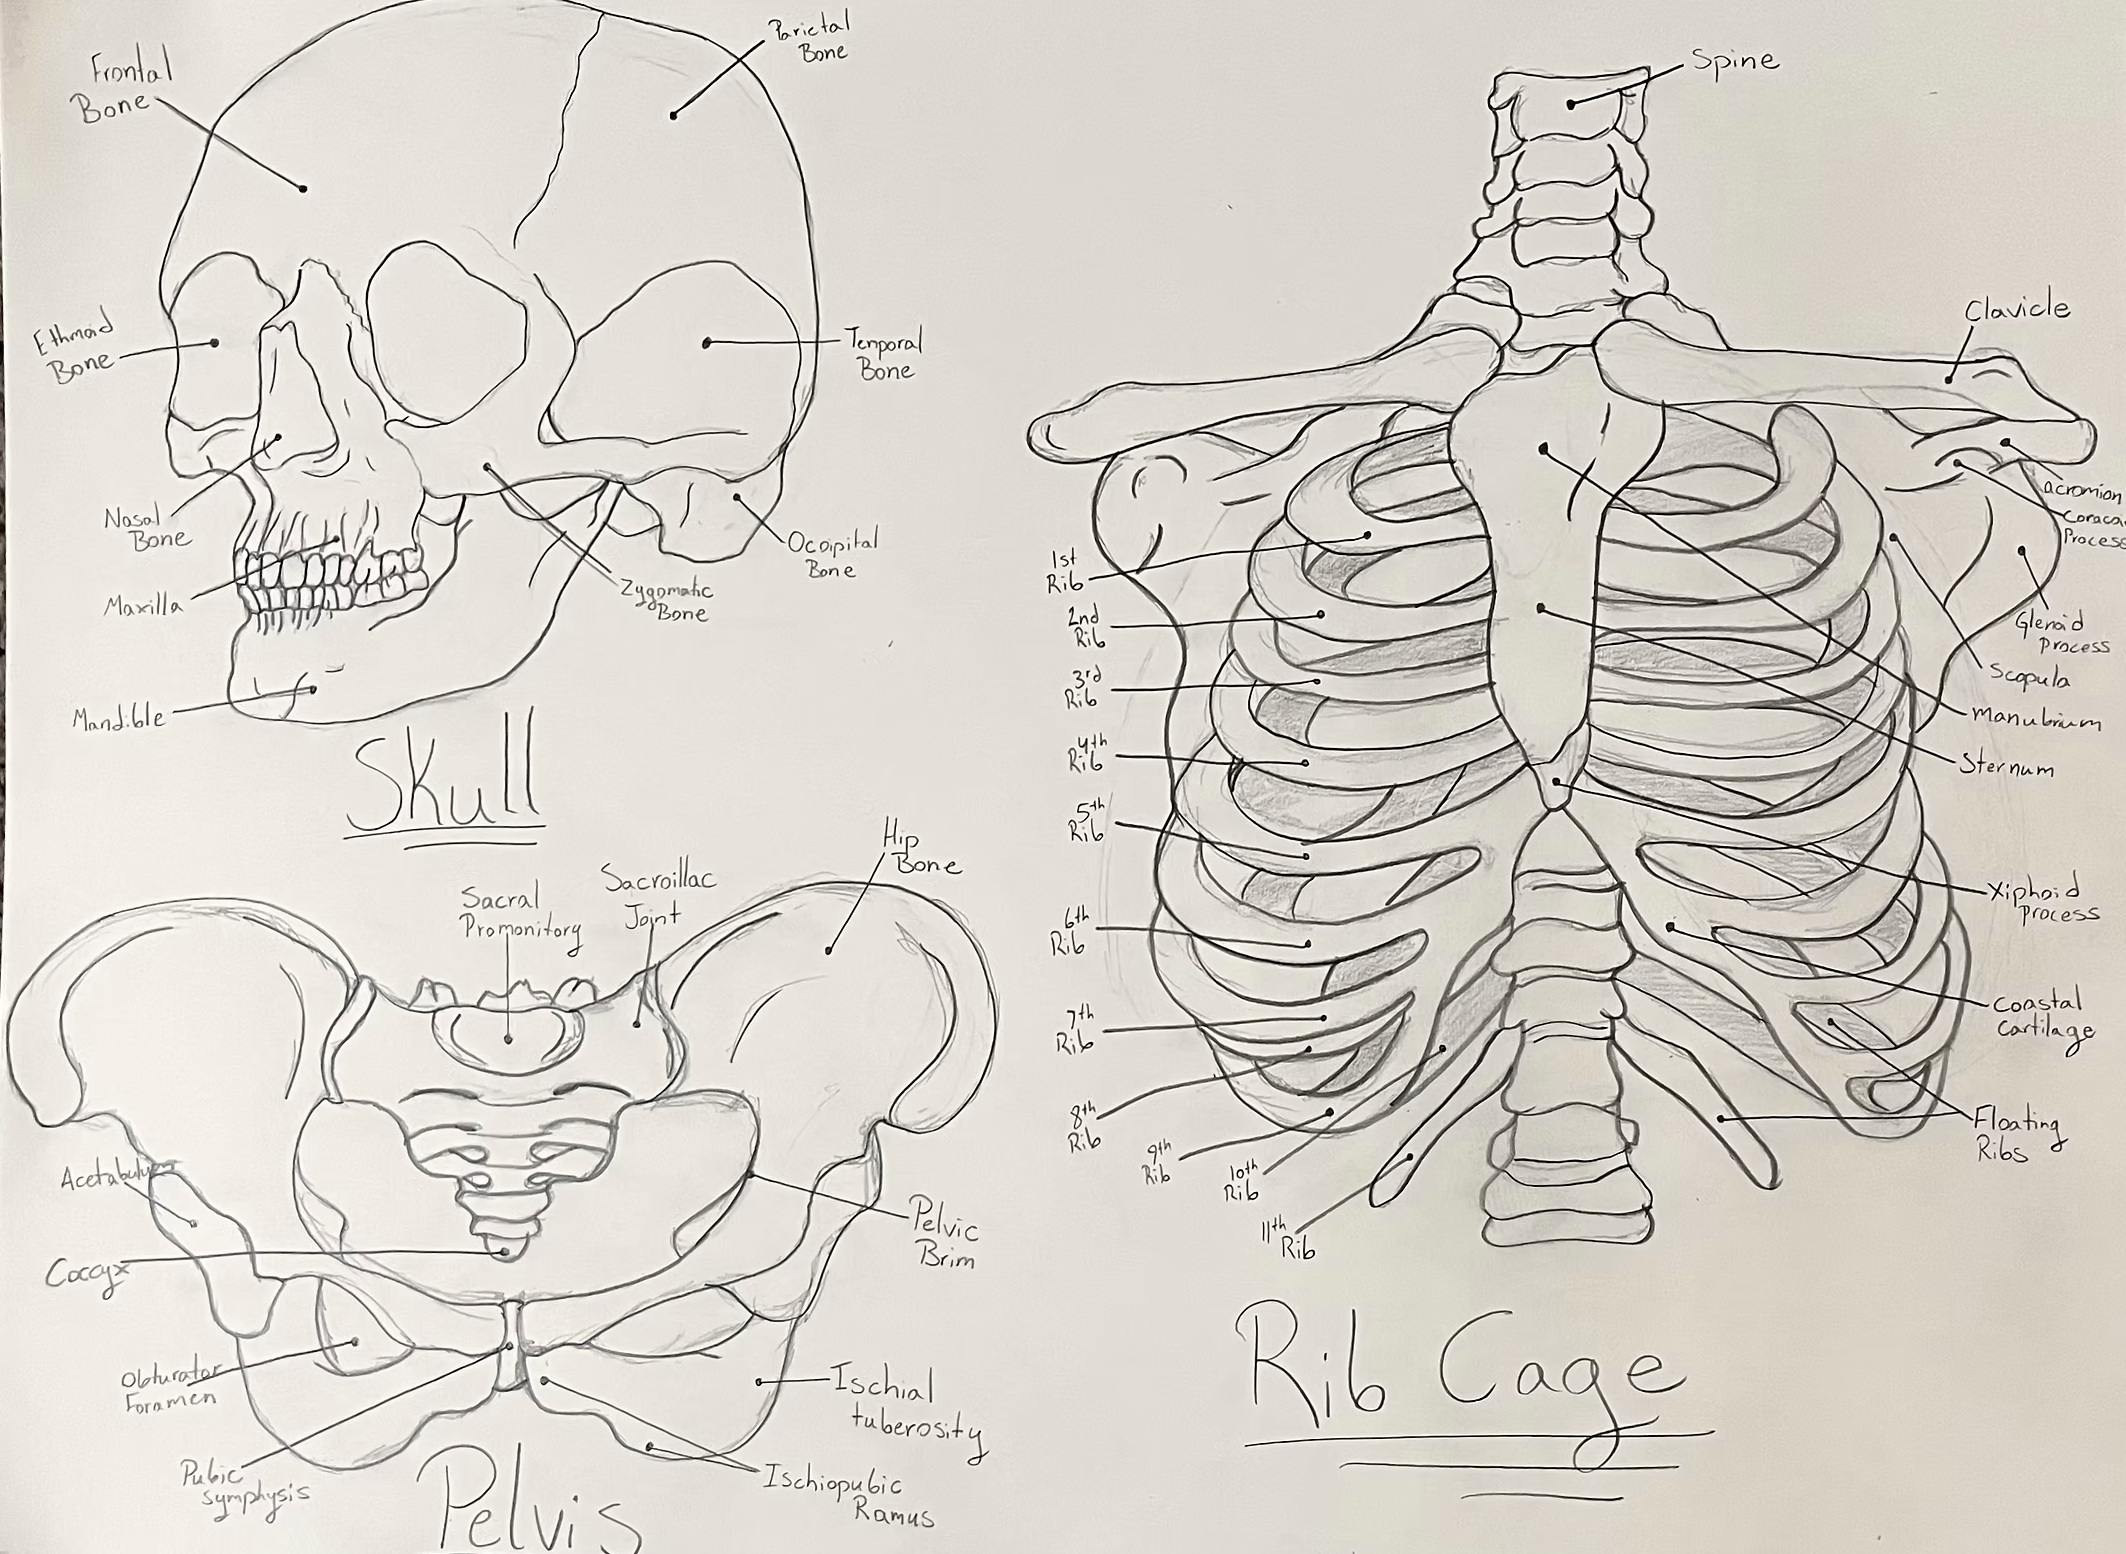 Frontal
Bone
Parietal
Bone
Ethmoid
Bone
Temporal
Bone
Nasal
Bone
Maxilla
Ocoipital
Bone
Zygomatic
Bone
Mandible
Skull
Hip
Bone
Sacral
Promonitory
Sacroillac
Joint
Acetabulum
Coccyx
Pelvic
Brim
Obturator
Foramen
Ischial
tuberosity
Pubic
symphysis
Ischiopubic
Ramus
Pelvis
Spine
Clavicle
acromion
Process
1st
Rib
2nd
Rib
3rd
Rib
4th
Rib
5th
Rib
6th
Rib
7th
Rib
8th
Rib
9th
Rib
10th
Rib
11th
Rib
Glenoid
Process
Scapula
Manubrium
Sternum
Xiphoid
Process
Coastal
Cartilage
Floating
Ribs
Rib Cage